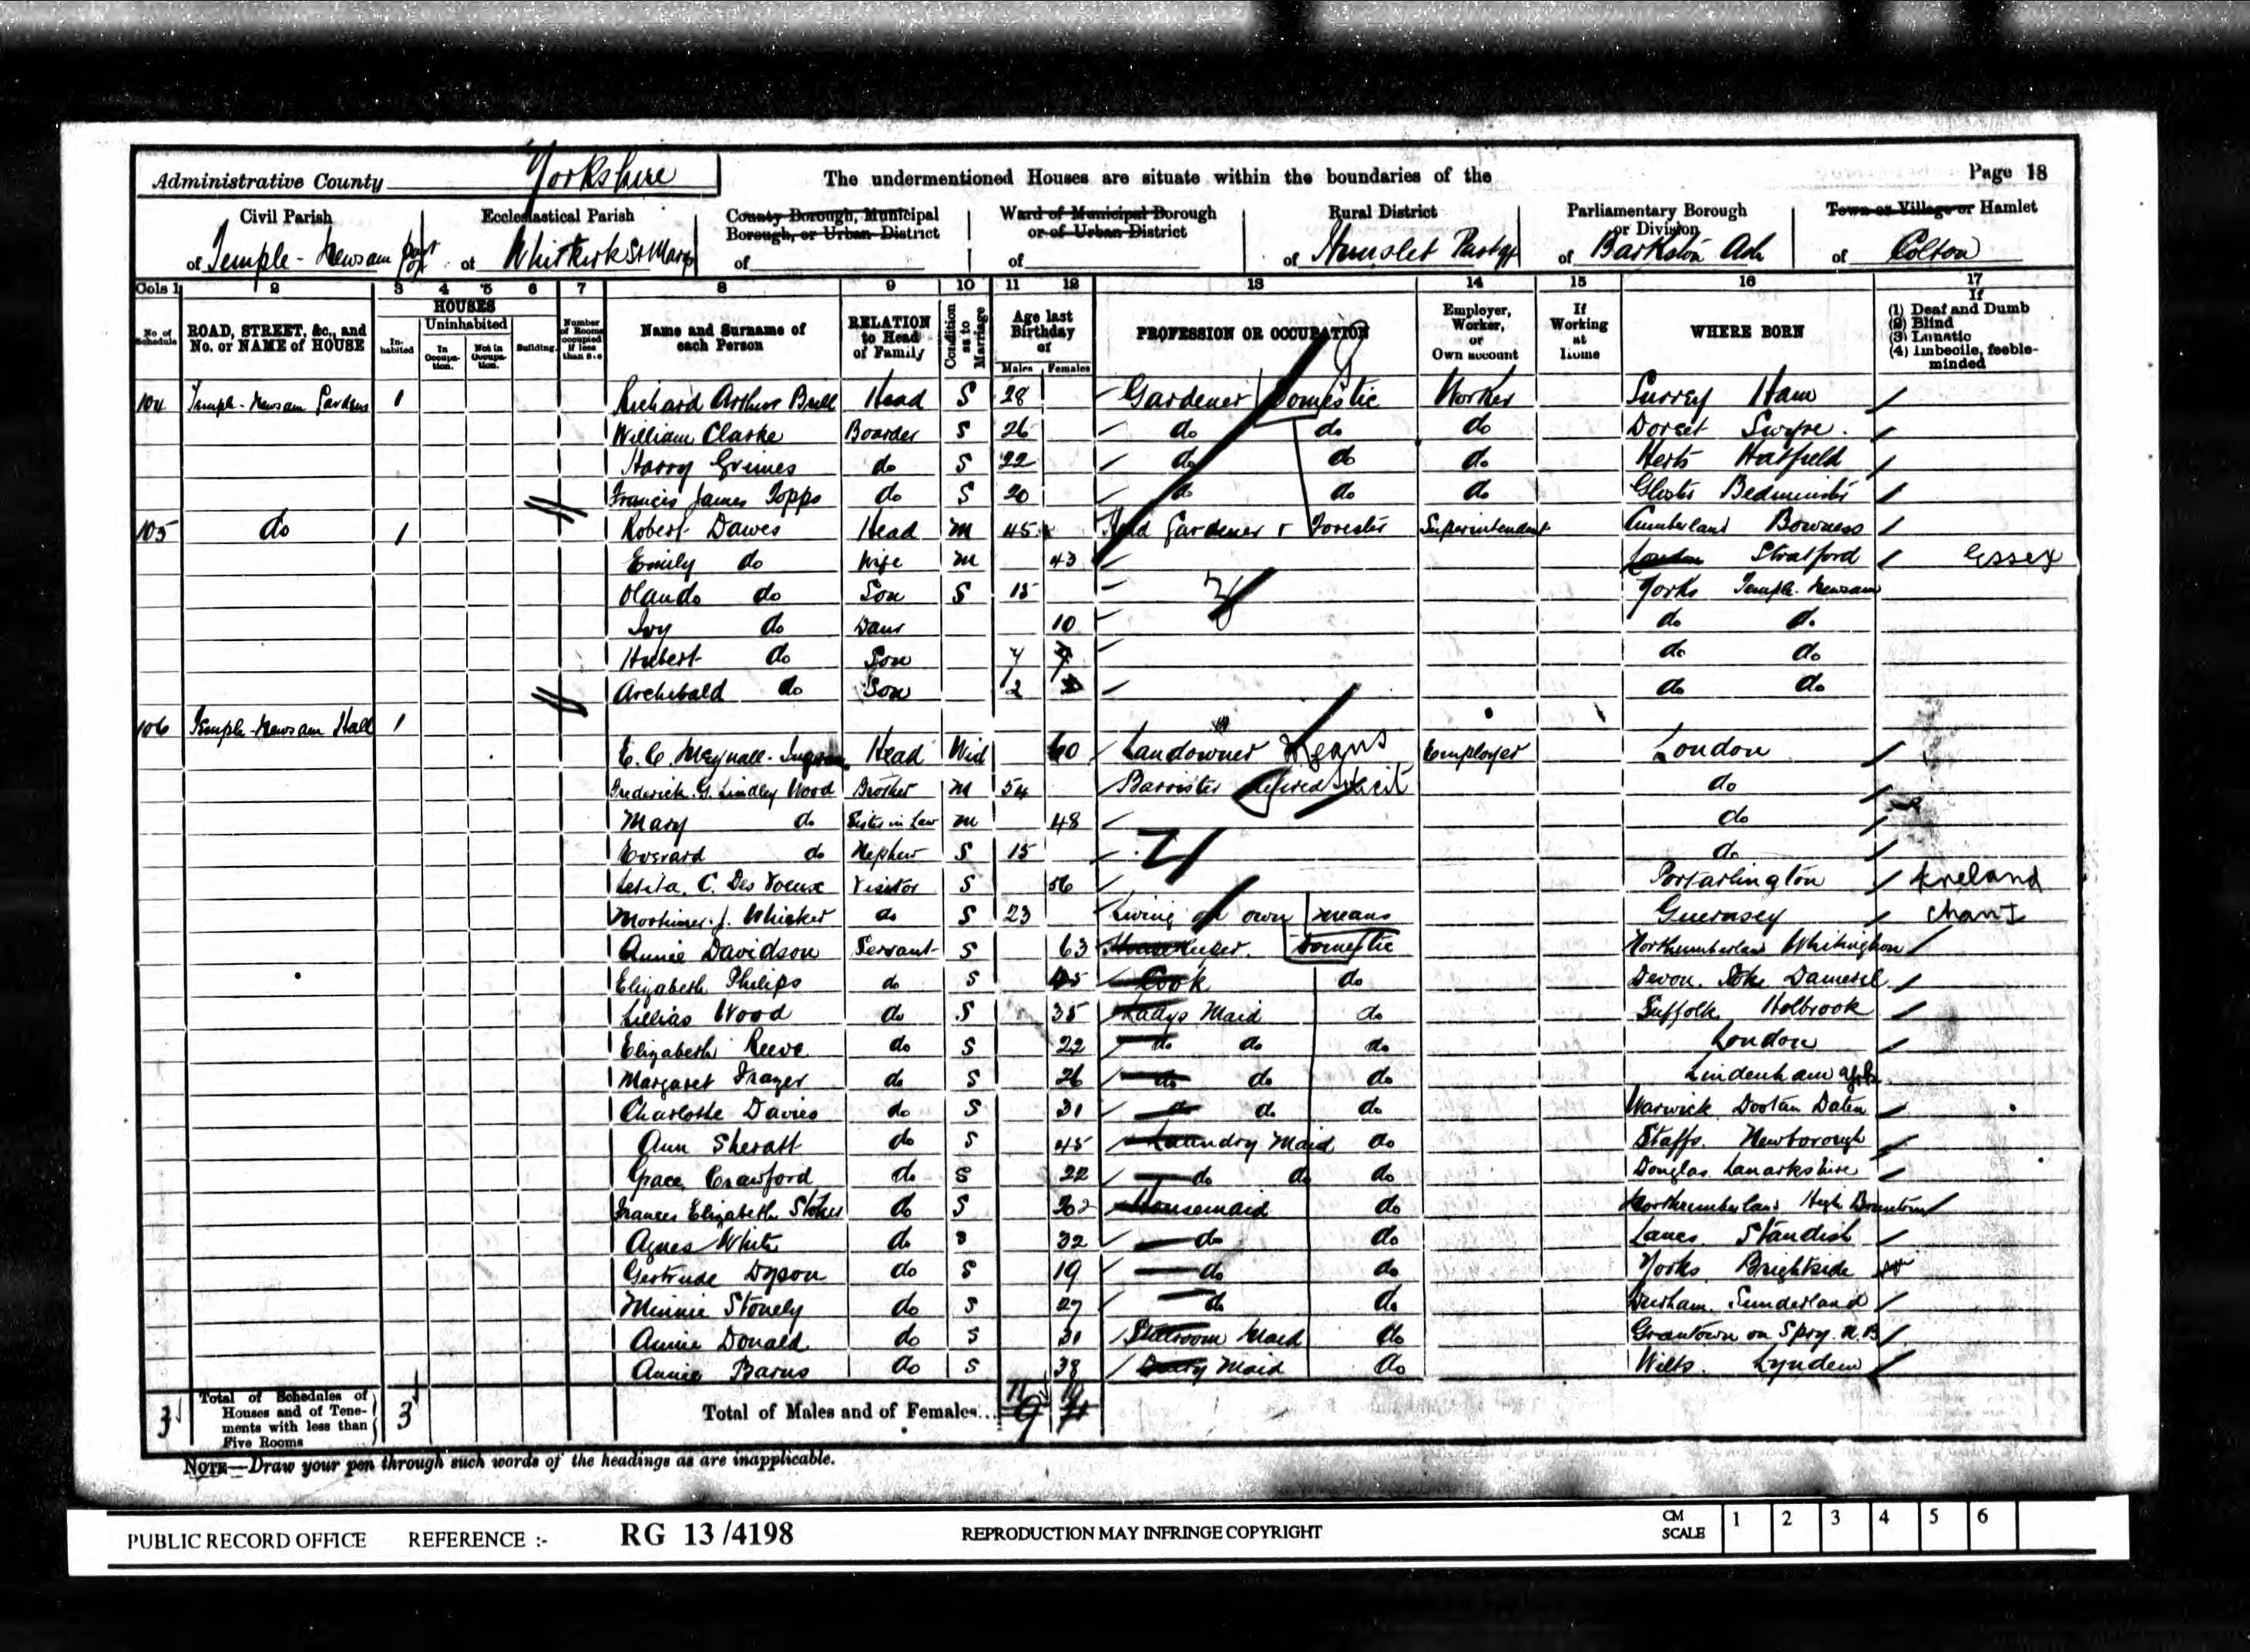 Page 18
Administrative County Yorkshire The undermentioned Houses are situate within the boundaries of the
Civil Parish Ecclesiastical Parish County Borough, Municipal Borough, or Urban District Ward of Municipal Borough or of Urban District Rural District Parliamentary Borough or Division Town or Village or Hamlet
of Temple-Newsam part of Whitkirk St Mary of of of Hunslet Part of of Barkston Ash of Colton
Cols 1 2 3 4 5 6 7 8 9 10 11 12 13 14 15 16 17
No. of Schedule ROAD, STREET, &c., and No. or NAME of HOUSE HOUSES Inhabited Uninhabited In Occupation. Not in Occupation. Building. Number of Rooms occupied if less than five Name and Surname of each Person RELATION to Head of Family Condition as to Marriage Age last Birthday of Males Females PROFESSION OR OCCUPATION Employer, Worker, or Own account If Working at Home WHERE BORN If (1) Deaf and Dumb (2) Blind (3) Lunatic (4) Imbecile, feeble-minded
104 Temple-Newsam Gardens 1 Richard Arthur Head S 28 Gardener Domestic Worker Surrey Ham
William Clarke Boarder S 26 do do do Dorset Swyre
Harry Grimes do S 22 do do do Herts Hatfield
Francis James Topps do S 20 do do do Gloster Bedminster
105 do 1 Robert Dawes Head M 45 Head Gardener & Forester Superintendent Cumberland Bowness
Emily do Wife M 43 London Stratford Essex
Olando do Son S 15 Yorks Temple-Newsam
Ivy do Daur 10 do do
Hubert do Son 7 do do
Archibald do Son 2 do do
106 Temple-Newsam Hall 1
E. C. Meynall-Ingram Head Wid 60 Landowner Means Employer London
Frederick G. Lindley Wood Brother M 54 Barrister do
Mary do Sister in Law M 48 do
Everard do Nephew S 15 do
C. Des Voeux Visitor S 56 Portarlington Ireland
Mortimer J. Whicker do S 23 Living on own means Guernsey Chan I
Annie Davidson Servant S 63 Housekeeper. Domestic Northumberland Whitingham
Elizabeth Philips do S 45 Cook do Devon. Stoke Damerel
Lillias Wood do S 35 Ladys Maid do Suffolk Holbrook
Elizabeth Reeve do S 22 do do do London
Margaret Frazer do S 26 do do do
Charlotte Davies do S 31 do do do Warwick
Ann Sheratt do S 45 Laundry Maid do Staffs. Newborough
Grace Crawford do S 22 do do do Douglas Lanarkshire
Frances Elizabeth Stokes do S Housemaid do Northumberland High
Agnes White do S 32 do do Lancs. Standish
Gertrude Dyson do S 19 do do Yorks Brightside
Minnie Stonely do S 27 do do Durham. Sunderland
Annie Donald do S 31 Stillroom Maid do Grantown on Spey. N.B
Annie Barns do S 38 Dairy Maid do Wilts. Lyndew
3 Total of Schedules of Houses and of Tenements with less than Five Rooms 3 Total of Males and of Females... 11 19
NOTE—Draw your pen through such words of the headings as are inapplicable.
PUBLIC RECORD OFFICE REFERENCE :- RG 13 /4198 REPRODUCTION MAY INFRINGE COPYRIGHT CM SCALE 1 2 3 4 5 6